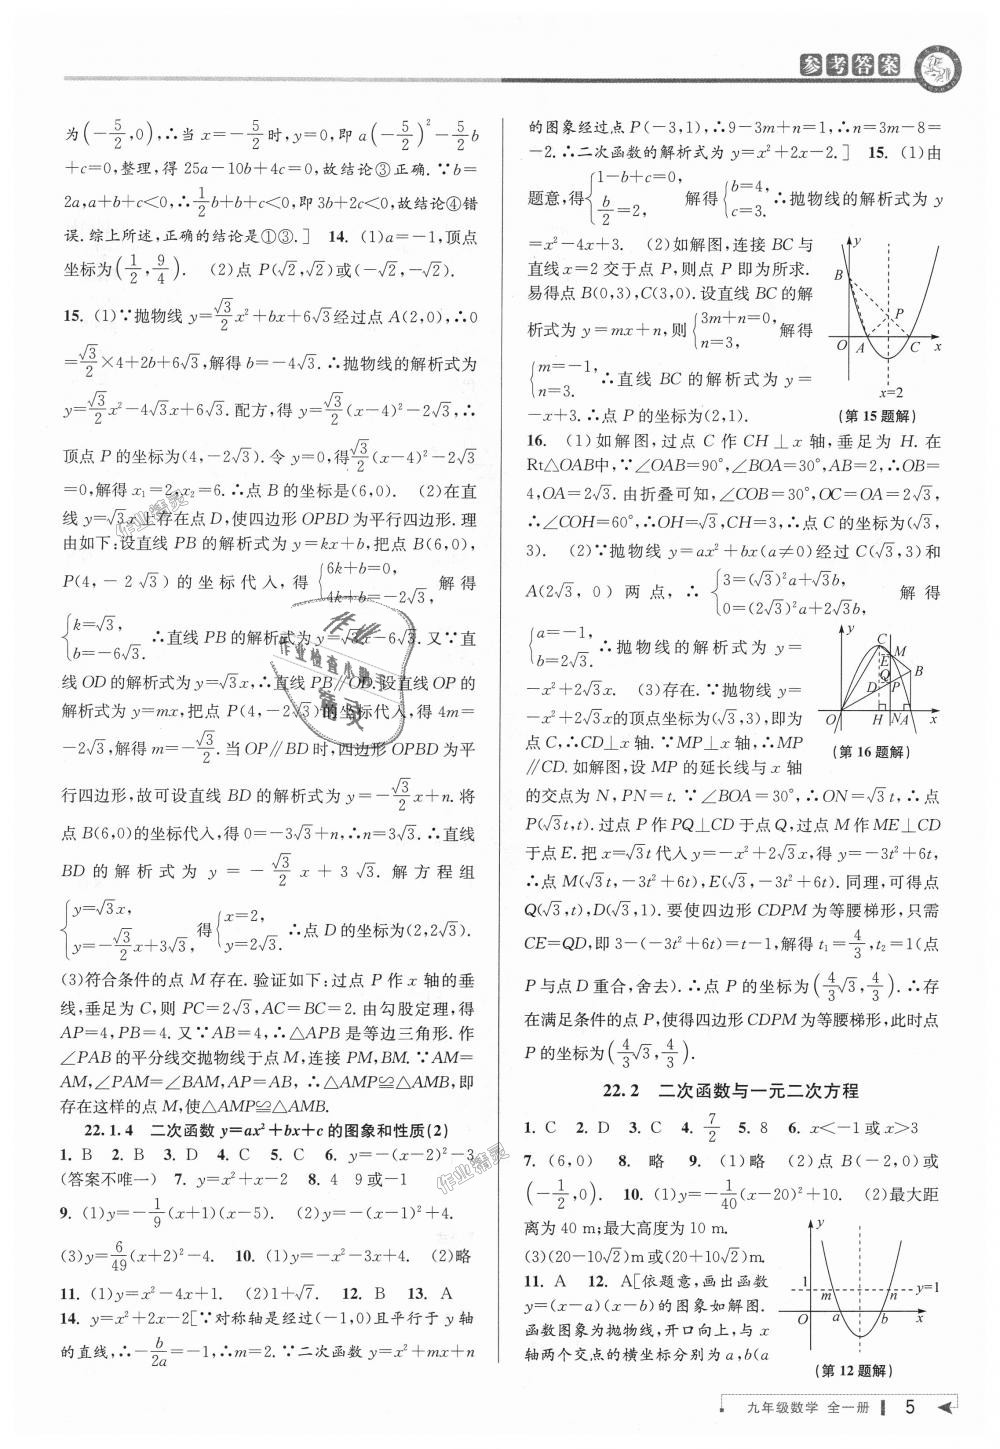 参考答案
为(-5/2,0),∴当 x=-5/2时,y=0,即 a(-5/2)²-5/2b
+c=0,整理,得 25a-10b+4c=0,故结论③正确.∵b=
2a,a+b+c<0,∴1/2b+b+c<0,即3b+2c<0,故结论④错
误.综上所述,正确的结论是①③.] 14. (1)a=-1,顶点
坐标为(1/2,9/4). (2)点 P(√2,√2)或(-√2,-√2).
15. (1)∵抛物线 y=√3/2x²+bx+6√3经过点 A(2,0),∴0
=√3/2×4+2b+6√3,解得 b=-4√3.∴抛物线的解析式为
y=√3/2x²-4√3x+6√3.配方,得 y=√3/2(x-4)²-2√3,∴
顶点 P 的坐标为(4,-2√3).令 y=0,得√3/2(x-4)²-2√3
=0,解得 x₁=2,x₂=6.∴点 B 的坐标是(6,0). (2)在直
线 y=√3x上存在点 D,使四边形 OPBD 为平行四边形.理
由如下:设直线 PB 的解析式为 y=kx+b,把点 B(6,0),
P(4,-2√3)的坐标代入,得{6k+b=0, 4k+b=-2√3, 解得
{k=√3, b=-6√3. ∴直线 PB 的解析式为 y=√3x-6√3.又∵直
线 OD 的解析式为 y=√3x,∴直线 PB∥OD.设直线OP 的
解析式为 y=mx,把点 P(4,-2√3)的坐标代入,得 4m=
-2√3,解得 m=-√3/2.当 OP∥BD 时,四边形 OPBD 为平
行四边形,故可设直线 BD 的解析式为 y=-√3/2x+n.将
点 B(6,0)的坐标代入,得 0=-3√3+n,∴n=3√3.∴直线
BD 的解析式为 y=-√3/2x+3√3.解方程组
{y=√3x, y=-√3/2x+3√3, 得{x=2, y=2√3. ∴点 D 的坐标为(2,2√3).
(3)符合条件的点 M 存在.验证如下:过点 P 作 x 轴的垂
线,垂足为 C,则 PC=2√3,AC=BC=2.由勾股定理,得
AP=4,PB=4.又∵AB=4,∴△APB 是等边三角形.作
∠PAB 的平分线交抛物线于点 M,连接 PM,BM.∵AM=
AM,∠PAM=∠BAM,AP=AB,∴△AMP≌△AMB,即
存在这样的点 M,使△AMP≌△AMB.
22.1.4 二次函数 y=ax²+bx+c 的图象和性质(2)
1. B 2. B 3. D 4. C 5. C 6. y=-(x-2)²-3
(答案不唯一) 7. y=x²+x-2 8. 4 9或-1
9. (1)y=-1/9(x+1)(x-5). (2)y=-(x-1)²+4.
(3)y=6/49(x+2)²-4. 10. (1)y=-x²-3x+4. (2)略
11. (1)y=x²-4x+1. (2)1+√7. 12. B 13. A
14. y=x²+2x-2[∵对称轴是经过(-1,0)且平行于 y 轴
的直线,∴-b/2a=-1,∴m=2.∵二次函数 y=x²+mx+n
的图象经过点 P(-3,1),∴9-3m+n=1,∴n=3m-8=
-2.∴二次函数的解析式为 y=x²+2x-2.] 15. (1)由
题意,得{1-b+c=0, b/2=2, 解得{b=4, c=3. ∴抛物线的解析式为 y
=x²-4x+3. (2)如解图,连接 BC 与
直线 x=2 交于点 P,则点 P 即为所求.
易得点 B(0,3),C(3,0).设直线 BC 的解
析式为 y=mx+n,则{3m+n=0, n=3, 解得
{m=-1, n=3. ∴直线 BC 的解析式为 y=
-x+3.∴点 P 的坐标为(2,1).
y
B
P
O A C x
x=2
(第 15 题解)
16. (1)如解图,过点 C 作 CH⊥x 轴,垂足为 H.在
Rt△OAB中,∵∠OAB=90°,∠BOA=30°,AB=2,∴OB=
4,OA=2√3.由折叠可知,∠COB=30°,OC=OA=2√3,
∴∠COH=60°,∴OH=√3,CH=3,∴点 C 的坐标为(√3,
3). (2)∵抛物线 y=ax²+bx(a≠0)经过 C(√3,3)和
A(2√3,0)两点,∴{3=(√3)²a+√3b, 0=(2√3)²a+2√3b, 解得
{a=-1, b=2√3. ∴抛物线的解析式为 y=
-x²+2√3x. (3)存在.∵抛物线 y=
-x²+2√3x的顶点坐标为(√3,3),即为
点 C,∴CD⊥x 轴.∵MP⊥x 轴,∴MP
∥CD.如解图,设 MP 的延长线与 x 轴
y
C
M
E
B
Q
D P
O H N A x
(第 16 题解)
的交点为 N,PN=t.∵∠BOA=30°,∴ON=√3t,∴点
P(√3t,t).过点 P 作 PQ⊥CD 于点 Q,过点 M 作 ME⊥CD
于点 E.把 x=√3t 代入 y=-x²+2√3x,得 y=-3t²+6t,
∴点 M(√3t,-3t²+6t),E(√3,-3t²+6t).同理,可得点
Q(√3,t),D(√3,1).要使四边形 CDPM 为等腰梯形,只需
CE=QD,即 3-(-3t²+6t)=t-1,解得 t₁=4/3,t₂=1(点
P 与点 D 重合,舍去).∴点 P 的坐标为(4/3√3,4/3).∴存
在满足条件的点 P,使得四边形 CDPM 为等腰梯形,此时点
P 的坐标为(4/3√3,4/3).
22.2 二次函数与一元二次方程
1. C 2. D 3. C 4. 7/2 5. 8 6. x<-1 或 x>3
7. (6,0) 8. 略 9. (1)略 (2)点 B(-2,0)或
(-1/2,0). 10. (1)y=-1/40(x-20)²+10. (2)最大距
离为 40 m;最大高度为 10 m.
(3)(20-10√2)m或(20+10√2)m.
11. A 12. A[依题意,画出函数
y=(x-a)(x-b)的图象如解图.
函数图象为抛物线,开口向上,与 x
轴两个交点的横坐标分别为 a,b(a
y
1
m n y=1
O a b x
(第 12 题解)
九年级数学 全一册 5
作业精灵
作业
作业检查小助手
精灵
作业精灵